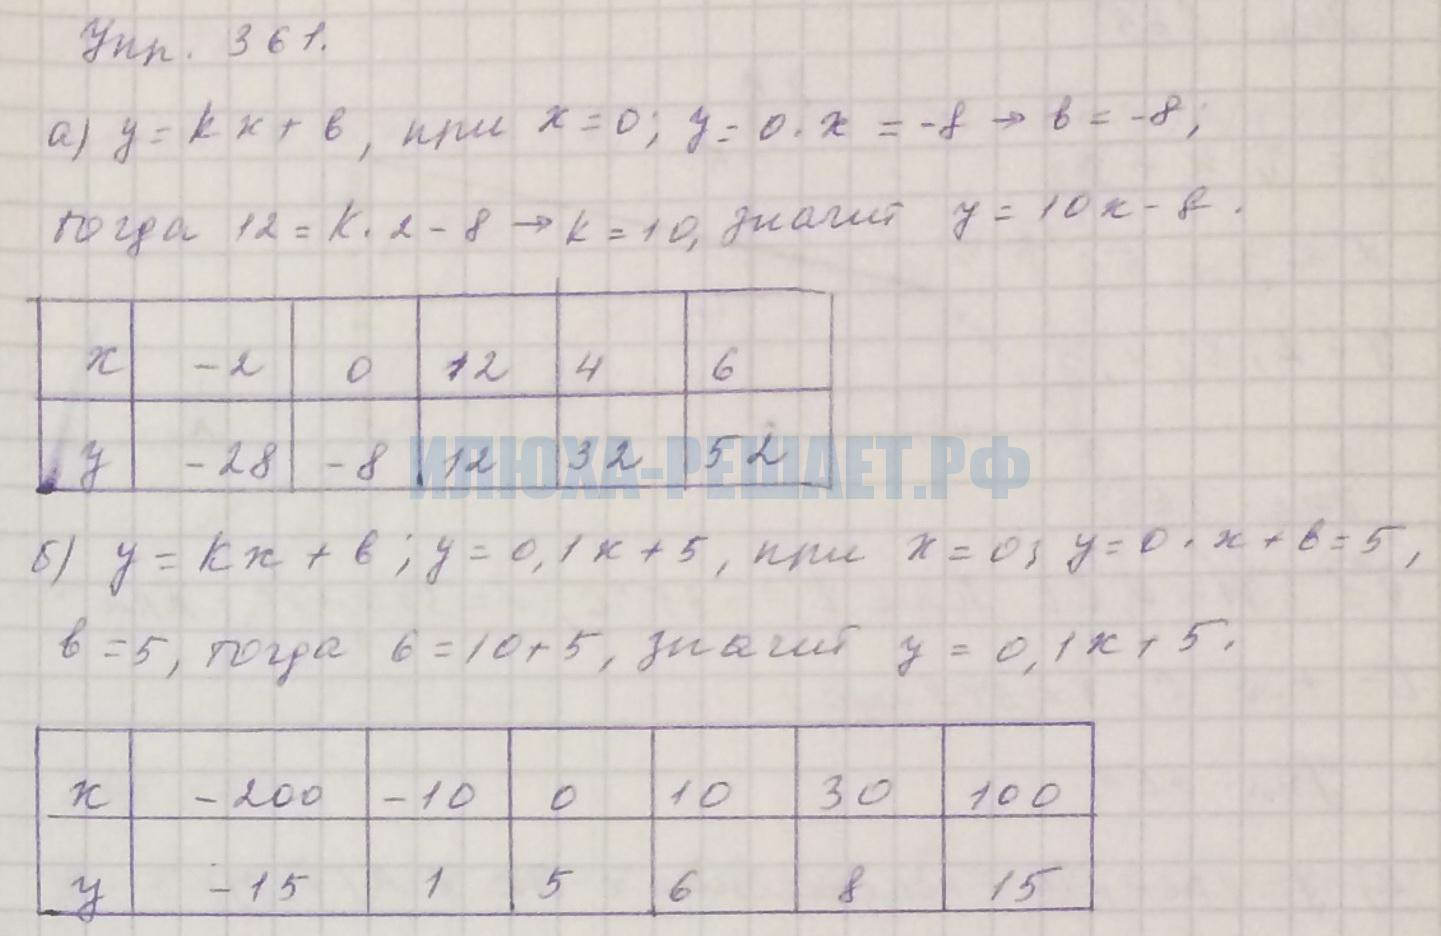 Упр. 361.
а) y = kx + b, при x = 0; y = 0 · x = -8 → b = -8;
тогда 12 = k · 2 - 8 → k = 10, значит y = 10x - 8.
x -2 0 12 4 6
y -28 -8 12 32 52
ИЛЮХА-РЕШАЕТ.РФ
б) y = kx + b; y = 0,1x + 5, при x = 0; y = 0 · x + b = 5,
b = 5, тогда 6 = 10 + 5, значит y = 0,1x + 5.
x -200 -10 0 10 30 100
y -15 1 5 6 8 15